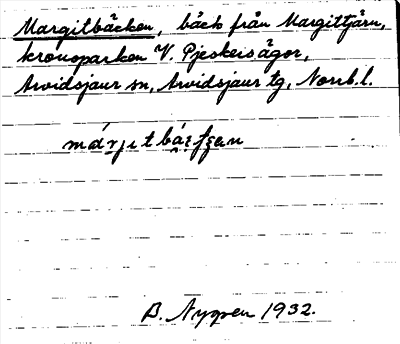 Margitbäcken, bäck från Margittjärn,
kronoparken V. Pjeskeisågor,
Arvidsjaur sn, Arvidsjaur tg, Norrb.l.
B. Nygren 1932.